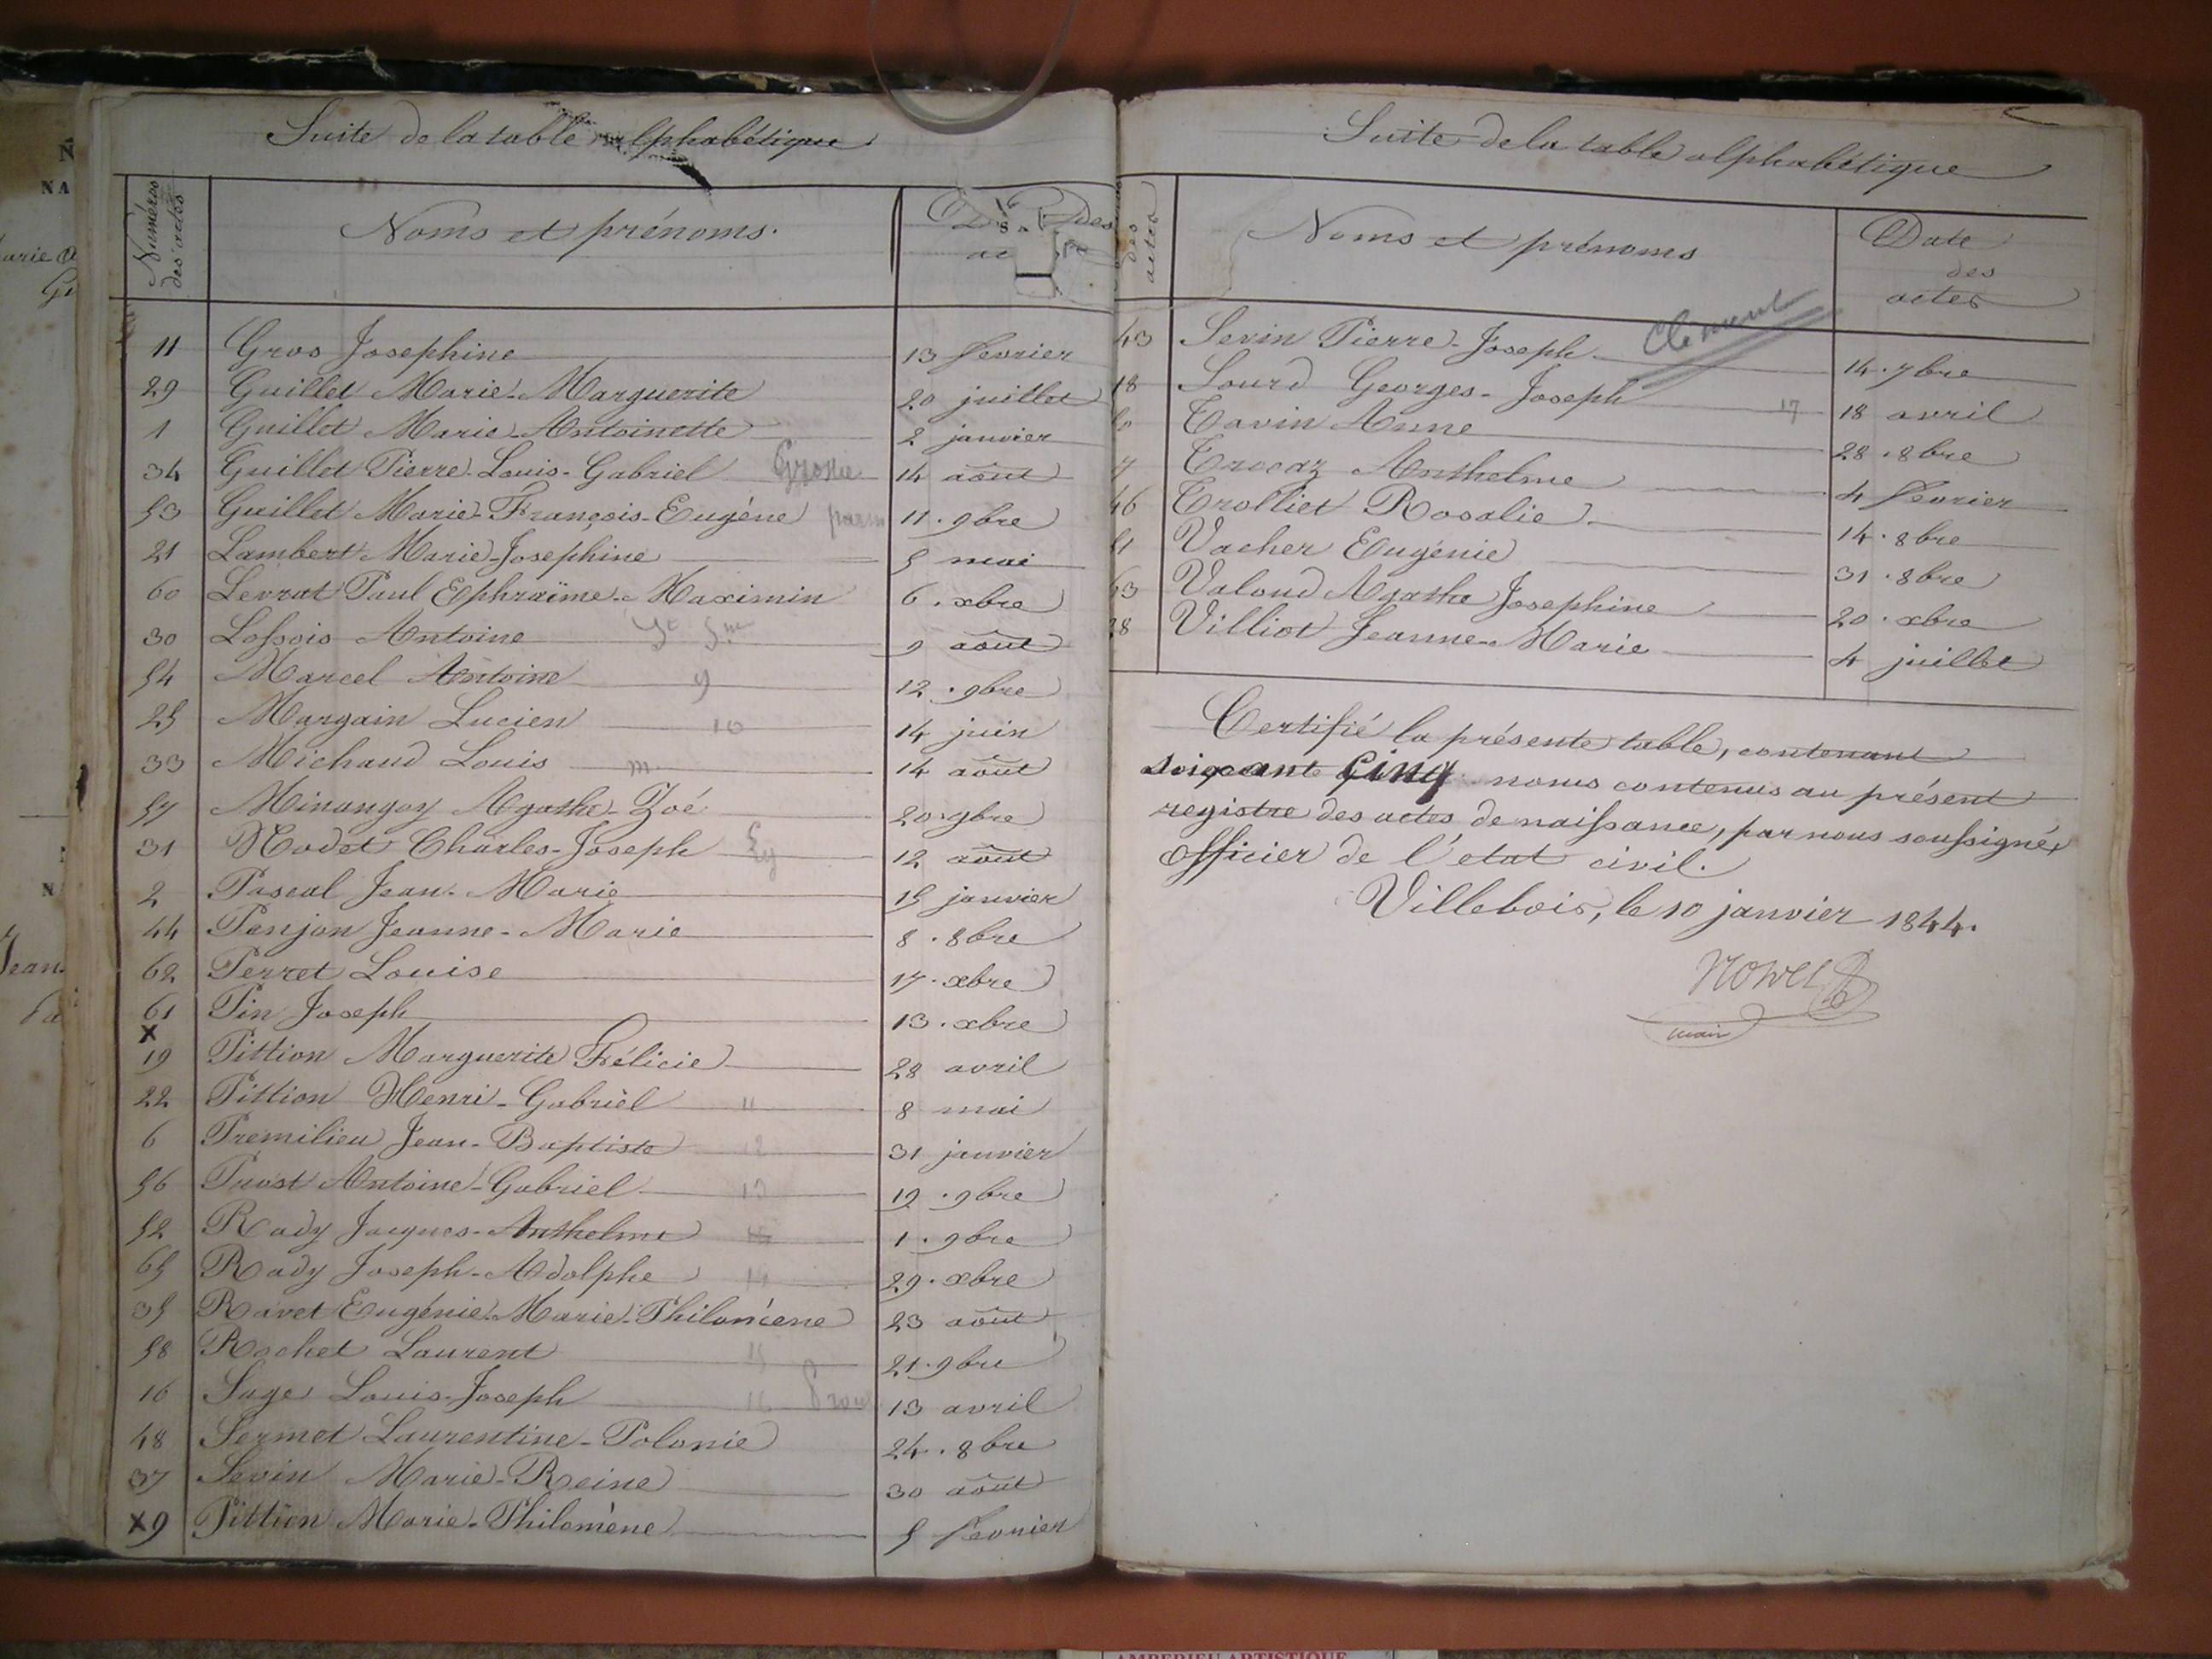 Suite de la table alphabétique
Numéros des actes
Noms et prénoms.
des
11 Gros Josephine 13 fevrier
29 Guillet Marie-Marguerite 20 juillet
1 Guillet Marie-Antoinette 2 janvier
34 Guillet Pierre-Louis-Gabriel 14 août
53 Guillet Marie-François-Eugéne 11.9bre
21 Lambert Marie-Josephine 5 mai
60 Levrat Paul Ephraïme-Maximin 6.xbre
30 Lossois Antoine 9 août
54 Marcel Antoine 9 12.9bre
25 Margain Lucien 10 14 juin
33 Michaud Louis m 14 août
57 Minangoy Agathe-Zoé 20.9bre
31 Nodet Charles-Joseph Ly 12 août
2 Pascal Jean-Marie 15 janvier
44 Penjon Jeanne-Marie 8.8bre
62 Perret Louise 17.xbre
61 Pin Joseph 13.xbre
x
19 Pittion Marguerite Félicie 28 avril
22 Pittion Henri-Gabriel 11 8 mai
6 Premilieu Jean-Baptiste 12 31 janvier
56 Prost Antoine-Gabriel 13 19.9bre
52 Rady Jacques-Anthelme 1.9bre
65 Rady Joseph-Adolphe 14 29.xbre
35 Ravet Eugénie-Marie-Philoméne 23 août
58 Rochet Laurent 15 21.9bre
16 Suge Louis-Joseph 16 13 avril
48 Sermet Laurentine-Polonie 24.8bre
37 Sevin Marie-Reine 30 août
x9 Pittion Marie-Philomène 5 fevrier
Suite de la table alphabétique
des actes
Noms et prénoms
Date
des
actes
43 Sevin Pierre-Joseph Clement 14.7bre
18 Sourd Georges-Joseph 17 18 avril
Tavin Anne 28.8bre
7 Trocaz Anthelme 4 fevrier
46 Trolliet Rosalie 14.8bre
51 Vacher Eugénie 31.8bre
63 Valoud Agathe Josephine 20.xbre
28 Villiot Jeanne-Marie 4 juillet
Certifié la présente table, contenant
soixante cinq noms contenus au présent
registre des actes de naissance, par nous soussigné,
officier de l'etat civil.
Villebois, le 10 janvier 1844.
maire